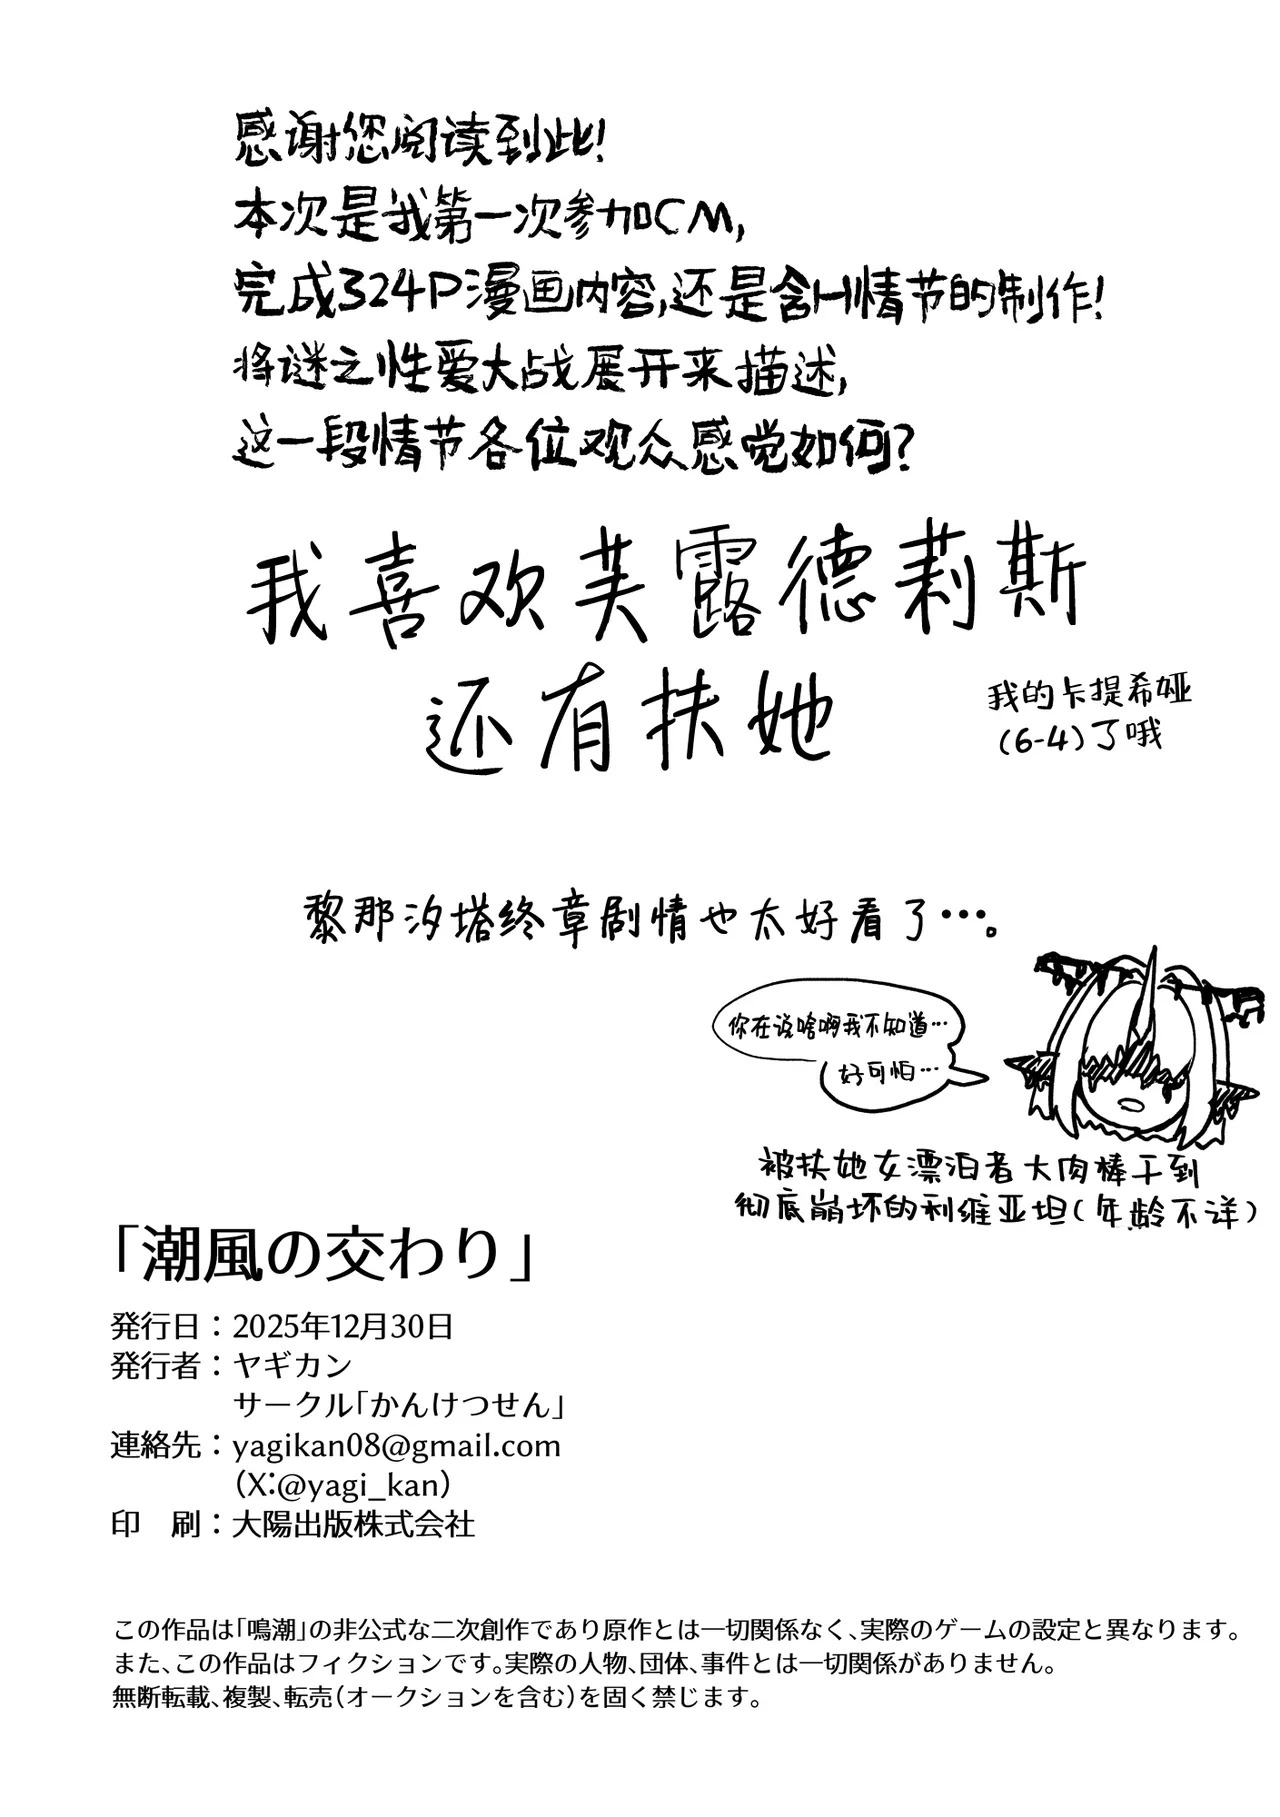 感谢您阅读到此!
本次是我第一次参加CM,
完成324P漫画内容,还是含H情节的制作!
将谜之性爱大战展开来描述,
这一段情节各位观众感觉如何?
我喜欢芙露德莉斯
还有扶她
我的卡提希娅
(6-4)了哦
黎那汐塔终章剧情也太好看了…。
你在说啥啊我不知道…
好可怕…
被扶她女漂泊者大肉棒干到
彻底崩坏的利维亚坦(年龄不详)
「潮風の交わり」
発行日：2025年12月30日
発行者：ヤギカン
サークル「かんけつせん」
連絡先：yagikan08@gmail.com
(X:@yagi_kan)
印　刷：大陽出版株式会社
この作品は「鳴潮」の非公式な二次創作であり原作とは一切関係なく、実際のゲームの設定と異なります。
また、この作品はフィクションです。実際の人物、団体、事件とは一切関係がありません。
無断転載、複製、転売(オークションを含む)を固く禁じます。